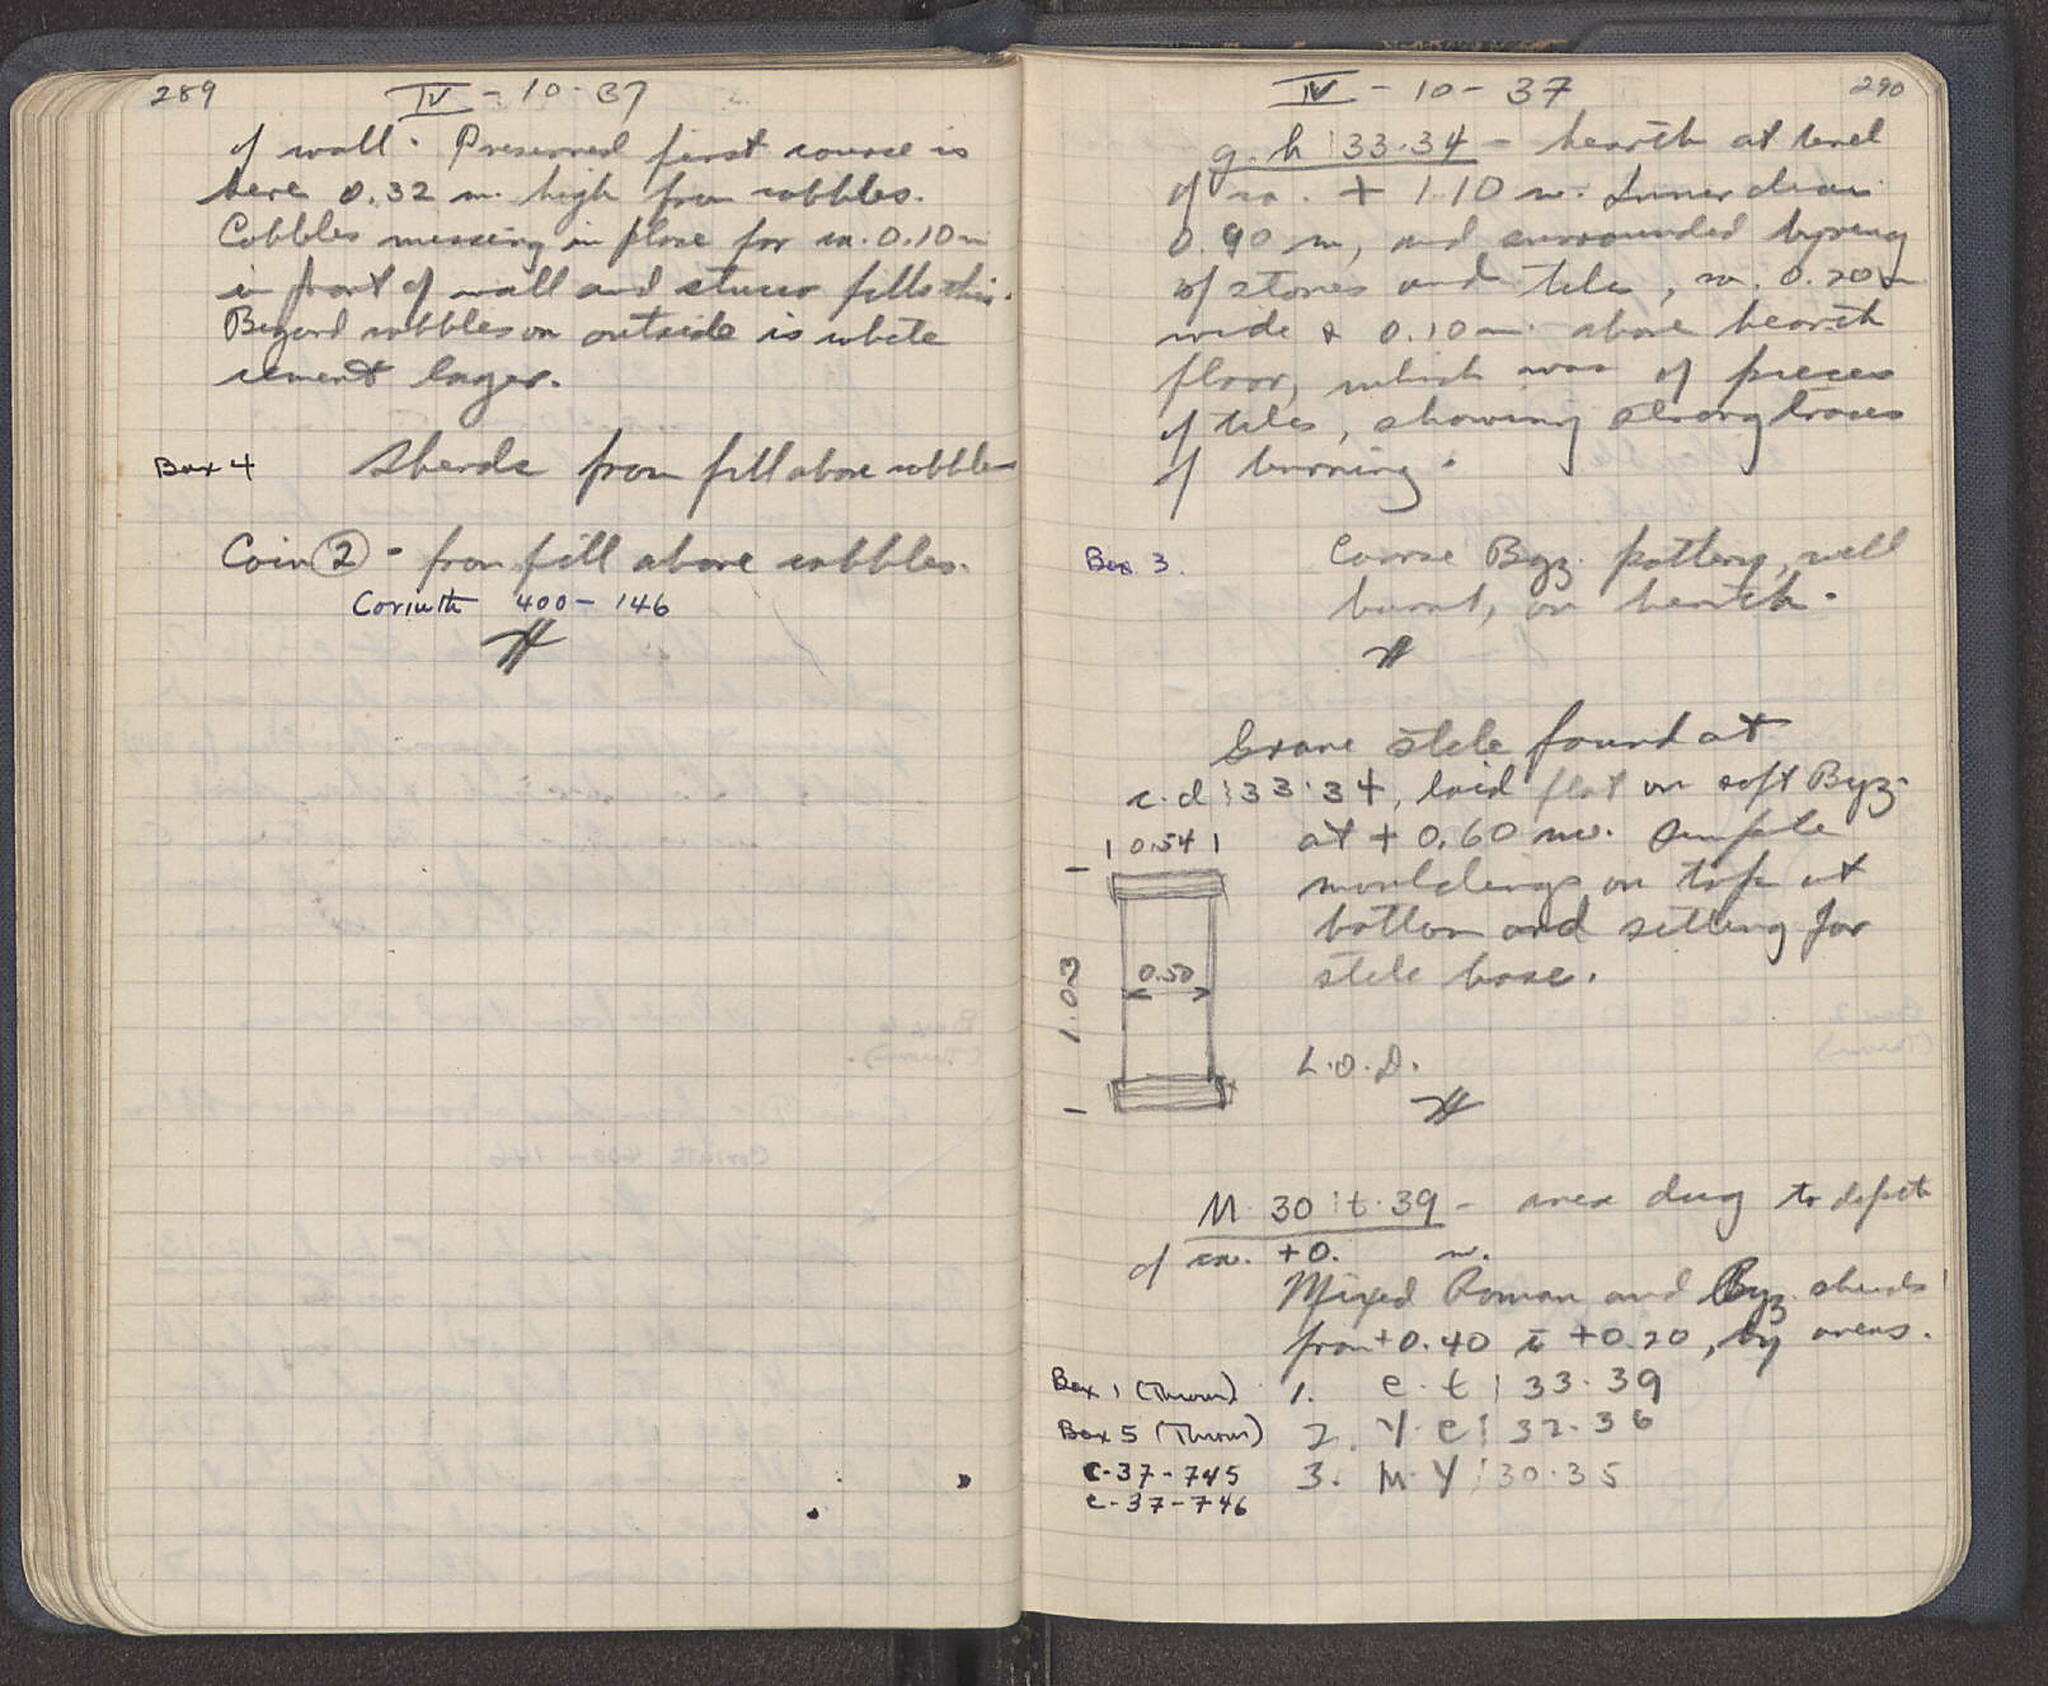 289
IV - 10 - 37
of wall. Preserved first course is
here 0.32 m. high from cobbles.
Cobbles missing in place for ca. 0.10 m
in front of wall and stucco fills this.
Beyond cobbles on outside is white
cement layer.
Box 4 Sherds from fill above cobbles
Coin 2 - from fill above cobbles.
Corinth 400 - 146
IV - 10 - 37
290
g.h : 33.34 - hearth at level
of ca. + 1.10 m. Inner diam.
0.90 m, and surrounded by ring
of stones and tiles, ca. 0.20 m
wide & 0.10 m. above hearth
floor, which was of pieces
of tiles, showing strong traces
of burning.
Box 3. Coarse Byz. pottery, well
burnt, on hearth.
Grave stele found at
c.d : 33.34, laid flat on soft Byz.
0.54 at + 0.60 m. Simple
mouldings on top at
bottom and setting for
stele base.
0.50
1.03
L.O.D.
M. 30 : t. 39 - area dug to depth
of ca. +0. m.
Mixed Roman and Byz. sherds
from +0.40 to +0.20, by areas.
Box 1 (Thrown) 1. e.t : 33.39
Box 5 (Thrown) 2. Y.e : 32.36
C-37-745 3. M.Y : 30.35
C-37-746